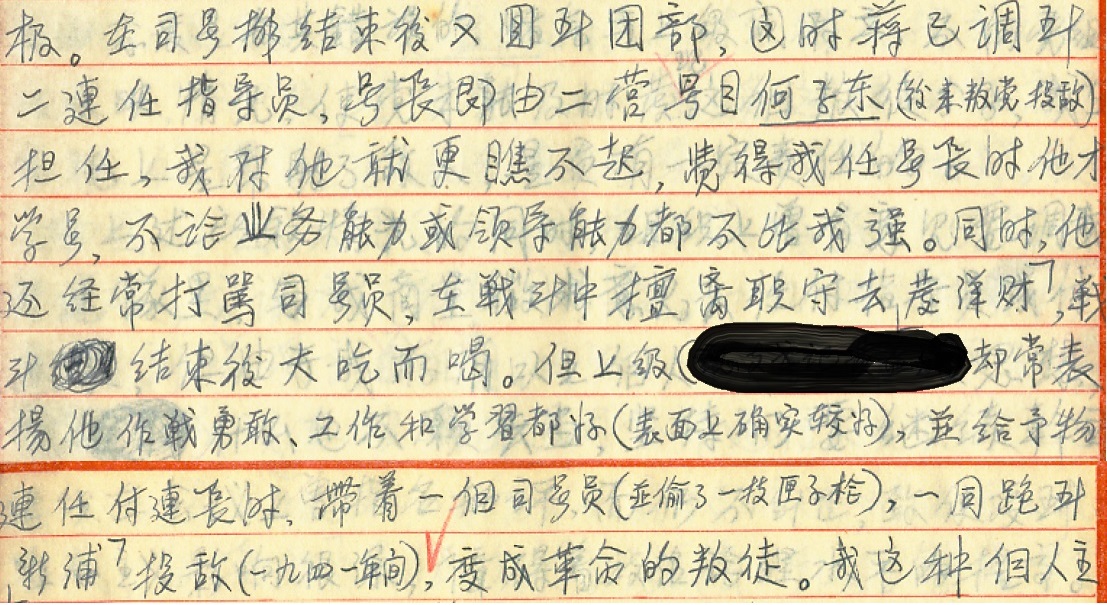 极。在司号排结束後又回到团部，这时蒋已调到
二連任指导员，号長即由二营号目何子东(後来叛党投敌)
担任、我对他就更瞧不起，觉得我任号長时他才
学号，不论业务能力或领导能力都不比我强。同时，他
还经常打駡司号员，在戦斗中擅离职守去发洋财，戦
斗结束後大吃而喝。但上级(却常表
揚他作戦勇敢、工作和学習都好(表面上确实较好)，並给予物
連任付連長时，带着一個司号员(並偷了一枝匣子枪)，一同跑到
新浦投敌(一九四一年间)，变成革命的叛徒。我这种個人主